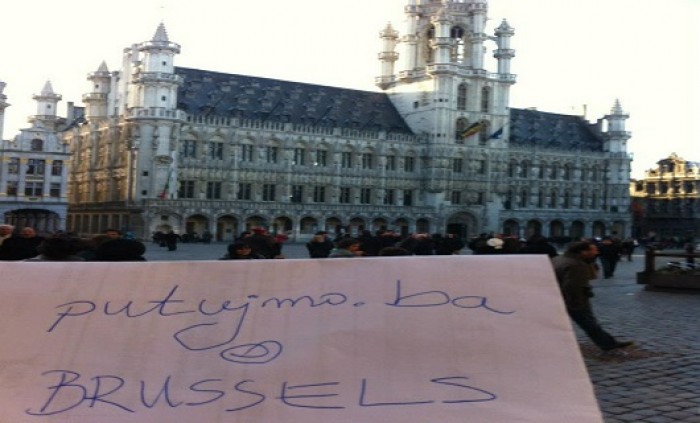 putujmo.ba
@
BRUSSELS